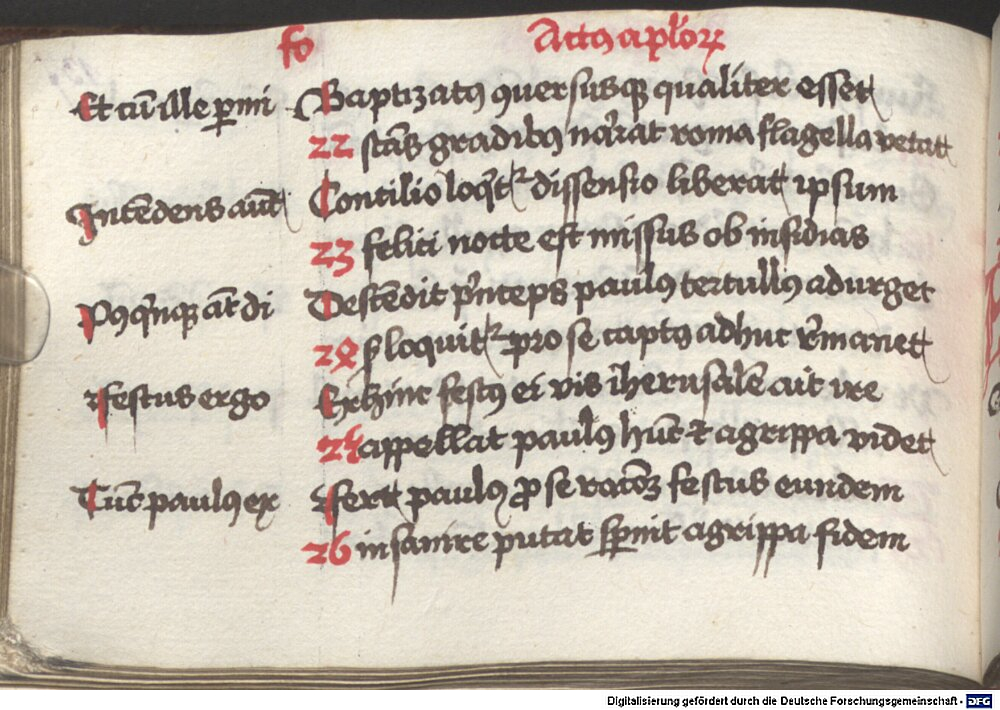 fo Actꝰ aplōꝝ
Et cū ille ꝑmi Baptizatꝰ ꝯuersusqꝫ qualiter esset
22 stās gradibꝰ narrat roma flagella vetat
Intēdens aūt Concilio loqͥt² dissensio liberat ipsum
23 felici nocte est missus ob insidias
Pꝰ qͥnqꝫ aūt di Descēdit pͥnceps paulus tertullꝰ adurget
24 loquit² pro se captꝰ adhuc remanet
festus ergo Exhinc festꝰ ei vis iherusalē ait ire
25 appellat paulꝰ hūc et agrippa videt
Tūc paulus ex fert paulꝰ ꝓ se racōꝫ festus eundem
26 insanire putat spernit agrippa fidem
Digitalisierung gefördert durch die Deutsche Forschungsgemeinschaft - DFG